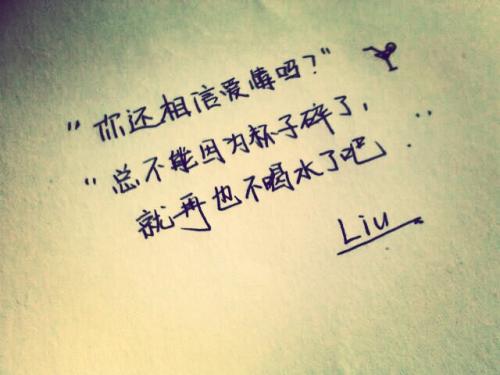 "你还相信爱情吗？"
"总不能因为杯子碎了，
就再也不喝水了吧..."
Liu